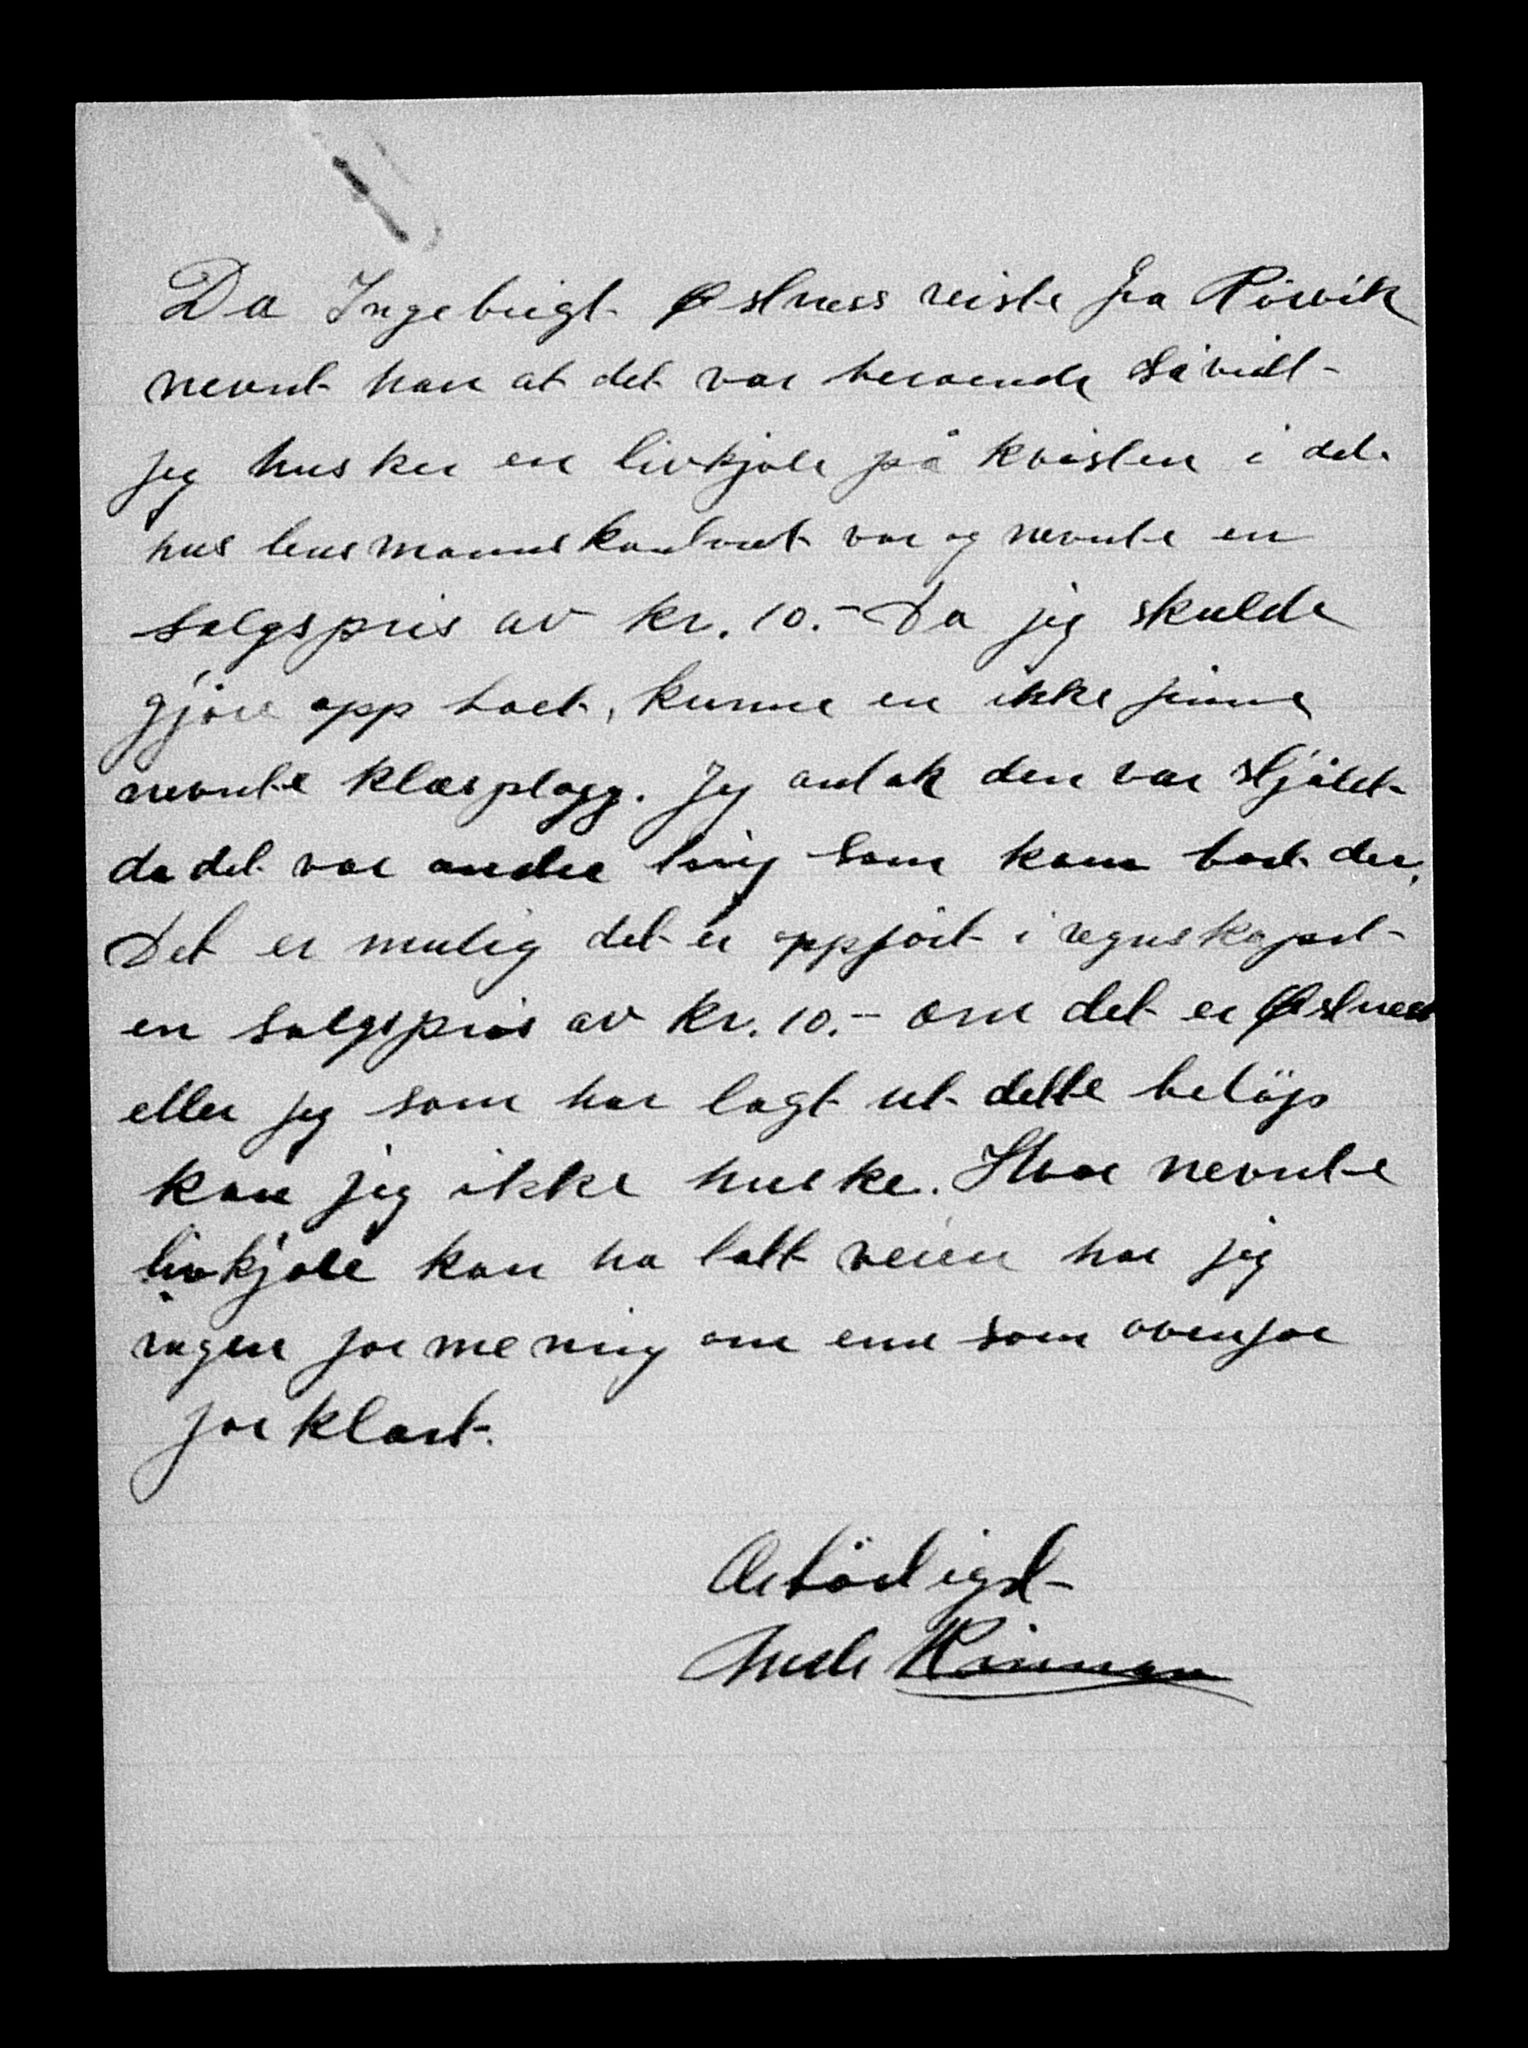 Da Ingebrigt Østness reiste fra Rörvik
nevnt han at det var beroende såvidt
jeg husker en livkjole på kvisten i det
hus lensmannskontoret var og nevnte en
salgspris av kr. 10.- Da jeg skulde
gjöre opp boet, kunne en ikke finne
nevnte klæsplagg. Jeg antok den var stjålet
da det var andre ting som kom bort der.
Det er mulig det er oppfört i regnskapet
en salgspris av kr. 10.- om det er Østness
eller jeg som har lagt ut dette belöp
kan jeg ikke huske. Hvor nevnte
livkjole kan ha tatt veien har jeg
ingen formening om enn som ovenfor
forklart.
Ærbödigst